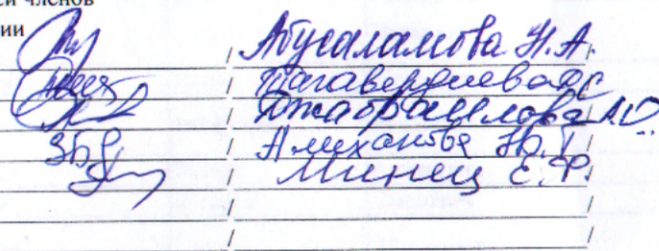 ей членов
ии / Абусаламова Н.А.
/ Тагавердиева
/ Джабраилова А.О
/ Алиханова Ю.Г
/ Минец Е.Ф.
/
/